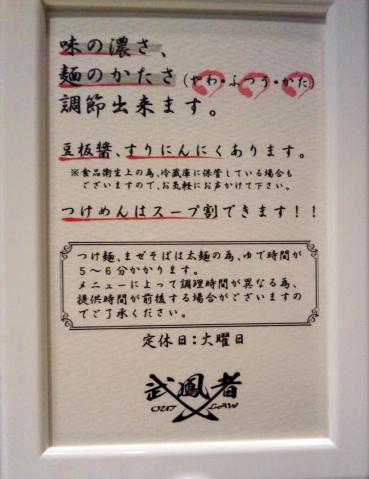 味の濃さ、
麺のかたさ(やわ・ふつう・かた)
調節出来ます。
豆板醤、すりにんにくあります。
※食品衛生上の為、冷蔵庫に保管している場合も
ございますので、お気軽にお声かけて下さい。
つけめんはスープ割できます！！
つけ麺、まぜそばは太麺の為、ゆで時間が
5〜6分かかります。
メニューによって調理時間が異なる為、
提供時間が前後する場合がございますの
でご了承ください。
定休日：火曜日
武鳳者
OUT LAW